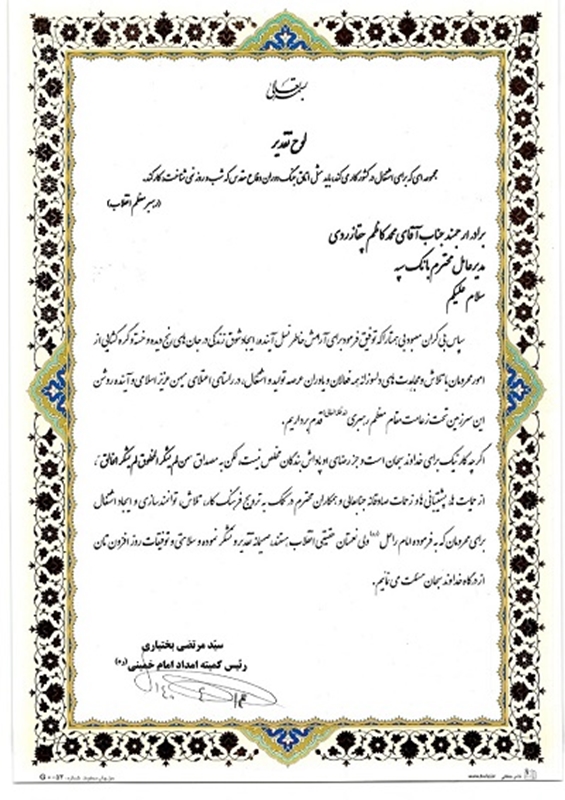 بسمه تعالی
لوح تقدیر
مجموعه ای که برای اشتغال در کشور کار می کند، باید مثل اتاق جنگ دوران دفاع مقدس که شب و روز نمی شناخت، کار کند.
(رهبر معظم انقلاب)
برادر ارجمند جناب آقای محمد کاظم چقازردی
مدیرعامل محترم بانک سپه
سلام علیکم
سپاس بی کران معبود بی همتا را که توفیق فرمود برای آرامش خاطر نسل آینده، ایجاد شوق زندگی در جان های رنج دیده و خسته و گره گشایی از
امور محرومان با تلاش و مجاهدت های دلسوزانه همه فعالان و یاوران عرصه تولید و اشتغال، در راستای اعتلای میهن عزیز اسلامی و آینده روشن
این سرزمین تحت زعامت مقام معظم رهبری (مدظله العالی) قدم برداریم.
اگرچه کار نیک برای خداوند سبحان است و جز رضای او پاداش بندگان مخلص نیست، لکن به مصداق «من لم یشکر المخلوق لم یشکر الخالق»،
از حمایت ها، پشتیبانی ها و زحمات صادقانه جنابعالی و همکاران محترم در کمک به ترویج فرهنگ کار، تلاش، توانمندسازی و ایجاد اشتغال
برای محرومان که به فرموده امام راحل (ره) ولی نعمتان حقیقی انقلاب هستند، صمیمانه تقدیر و تشکر نموده و سلامتی و توفیقات روز افزون تان
از درگاه خداوند سبحان مسئلت می نمایم.
سیّد مرتضی بختیاری
رئیس کمیته امداد امام خمینی (ره)